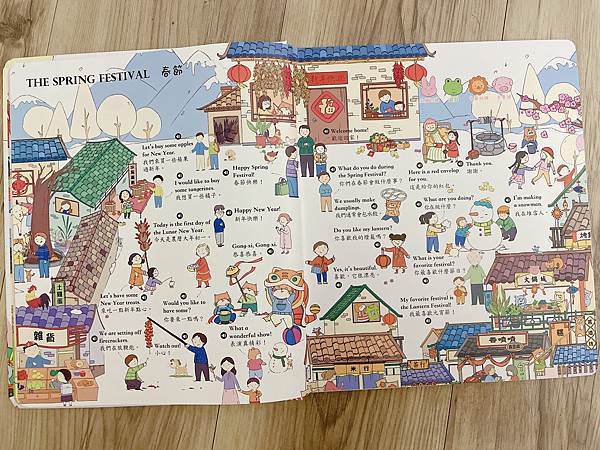 THE SPRING FESTIVAL 春節
Let's buy some apples
for New Year.
我們來買一些蘋果
過新年。
I would like to buy
some tangerines.
我想買一些橘子。
Happy Spring
Festival!
春節快樂！
Today is the first day of
the Lunar New Year.
今天是農曆大年初一。
Happy New Year!
新年快樂！
Gong-xi, Gong-xi.
恭喜恭喜。
Let's have some
New Year treats.
來吃一點新年點心。
Would you like to
have some?
你要來一點嗎？
We are setting off
firecrackers.
我們在放鞭炮。
Watch out!
小心！
What a
wonderful show!
表演真精彩！
雜貨
福
Welcome home!
歡迎回家！
What do you do during
the Spring Festival?
你們在春節會做什麼事？
Here is a red envelop
for you.
這是給你的紅包。
Thank you.
謝謝。
We usually make
dumplings.
我們通常會包水餃。
What are you doing?
你在做什麼？
I'm making a
snowman.
我在堆雪人。
Do you like my lantern?
你喜歡我的燈籠嗎？
Yes, it's beautiful.
喜歡，它很漂亮。
What is your
favorite festival?
你最喜歡什麼節日？
My favorite festival is
the Lantern Festival!
我最喜歡元宵節！
米行
大傷風
香噴噴